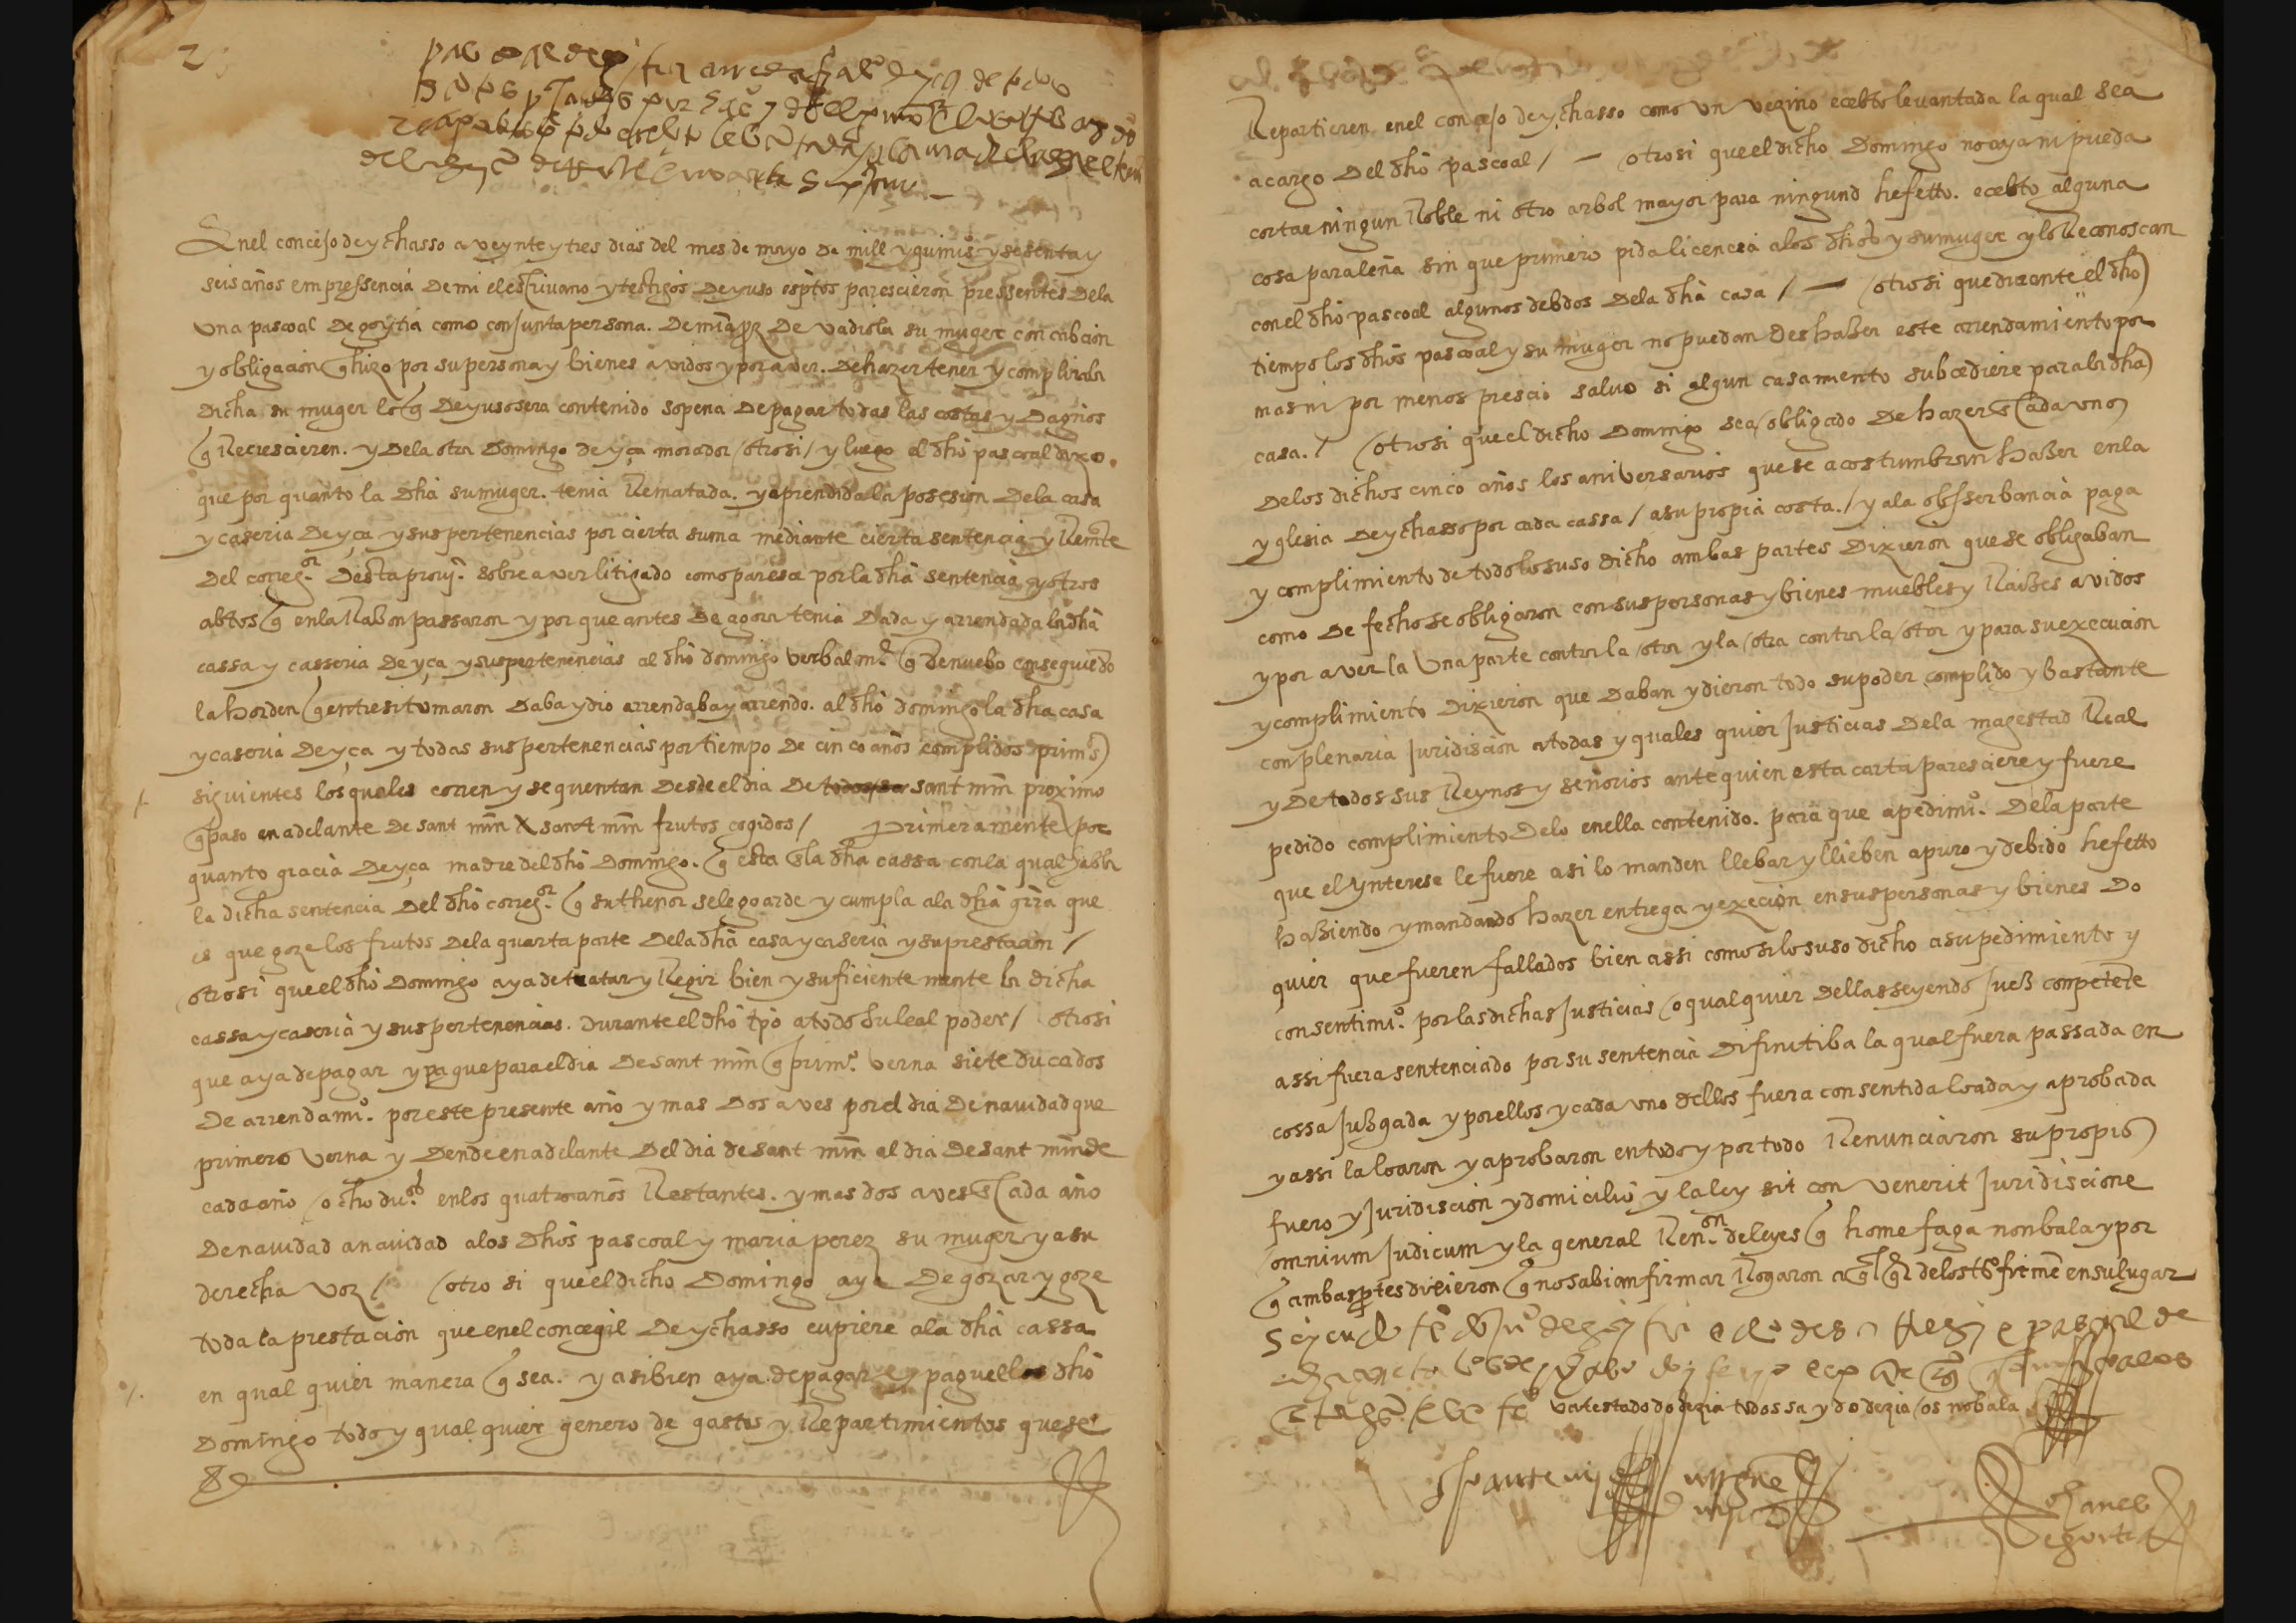 2
Enel concejo de ychasso a veynte y tres dias del mes de mayo de mill y quinisº y sesenta y
seis años en pressencia de mi el escrivano y testigos deyuso esptos parescieron pressentes dela
una pascoal de goytia como conjunta persona. de mia prz de vadiola su muger con cabcion
y obligacion q hizo por su persona y bienes avidos y por aver. de hazer tener y complir ala
dicha su muger lo q deyuso sera contenido so pena de pagar todas las costas y dagnos
q Recrescieren. y dela otra Domingo de yça morador / otrosi / y luego el dho pascoal dixo.
que por quanto la dha su muger. tenia Rematada. y aprendida la posesion dela casa
y caseria de yça y sus pertenencias por cierta suma mediante cierta sentencia y Remte
del corregor desta provya sobre aver litigado como paresce por la dha sentencia y otros
abtos q en la Razon passaron y por que antes de agora tenia dada y arrendada la dha
cassa y casseria de yça y sus pertenencias al dho domingo verbalmte q de nuebo conseguiedo
la horden q entre si tomaron daba y dio arrendaba y arrendo. al dho domingo la dha casa
y caseria de yça y todas sus pertenencias por tiempo de cinco años complidos primos
siguientes los quales corren y se quentan desde el dia de todos sa sant mīn proximo
q paso en adelante de sant mīn a sant mīn frutos cogidos / Primeramente por
quanto gracia de yça madre del dho Domingo. q esta en la dha cassa con la qual habla
la dicha sentencia del dho corregor q su thenor se le goarde y cumpla ala dha gr̄ra que
es que goze los frutos dela quarta parte dela dha casa y caseria y su prestaon /
otrosi que el dho Domingo aya de tratar y Regir bien y suficientemente la dicha
cassa y caseria y sus pertenencias. durante el dho tpo a todo su leal poder / otrosi
que aya de pagar y pague para el dia de sant mīn q primº verna siete ducados
de arrendamiº. por este presente año y mas dos aves por el dia de navidad que
primero verna y dende en adelante del dia de sant mīn al dia de sant mīn de
cada año ocho duos en los quatro años Restantes. y mas dos aves en cada año
de navidad a navidad alos dhos pascoal y maria perez su muger y a su
derecha voz / otro si que el dicho Domingo aya de gozar y goze
toda la prestacion que en el concegil de ychasso cupiere ala dha cassa
en qual quier manera q sea. y asi bien aya de pagar y pague el dho
Domingo todo y qual quier genero de gastos y Repartimientos que se
Repartieren en el concejo de ychasso como un vezino ecebto levantada la qual sea
a cargo del dho pascoal / — otrosi que el dicho Domingo no aya ni pueda
cortar ningun Roble ni otro arbol mayor para ningund hefetto. ecebto alguna
cosa para leña sin que primero pida licencia alos dhos y su muger y lo Reconoscan
con el dho pascoal algunos debdos dela dha casa / — otrosi que durante el dho
tiempo los dhos pascoal y su muger no puedan deshazer este arrendamiento por
mas ni por menos prescio salvo si algun casamiento subcediere para la dha
casa. / otrosi que el dicho Domingo sea obligado de hazer en cada uno
delos dichos cinco años los aniversarios que se acostumbran hazer en la
yglesia de ychasso por cada cassa / a su propia costa. / y ala obsserbancia paga
y complimiento de todo lo suso dicho ambas partes dixieron que se obligaban
como de fecho se obligaron con sus personas y bienes muebles y Raizes avidos
y por aver la una parte contra la otra y la otra contra la otra y para su execucion
y complimiento dixieron que daban y dieron todo su poder complido y bastante
con plenaria juridiscion a todas y quales quier justicias dela magestad Real
y de todos sus Reynos y señorios ante quien esta carta paresciere y fuere
pedido complimiento delo en ella contenido. para que a pedimiº. dela parte
que el ynterese le fuere asi lo manden llebar y llieben a puro y debido hefetto
haziendo y mandando hazer entrega y execion en sus personas y bienes do
quier que fueren fallados bien assi como si lo suso dicho a su pedimiento y
consentimiº. por las dichas justicias o qualquier dellas seyendo juez competēte
assi fuera sentenciado por su sentencia difinitiba la qual fuera passada en
cossa juzgada y por ellos y cada uno dellos fuera consentida loada y aprobada
y assi la loaron y aprobaron en todo y por todo Renunciaron su propio
fuero y juridiscion y domicilio y la ley sit con venerit juridiscione
omnium judicum y la general Renon de leyes q home faga non bala y por
q ambas ptes dixieron q no sabian firmar Rogaron a delos tsº firme en su lugar
va testado do dezia todos sa y do dezia os no bala